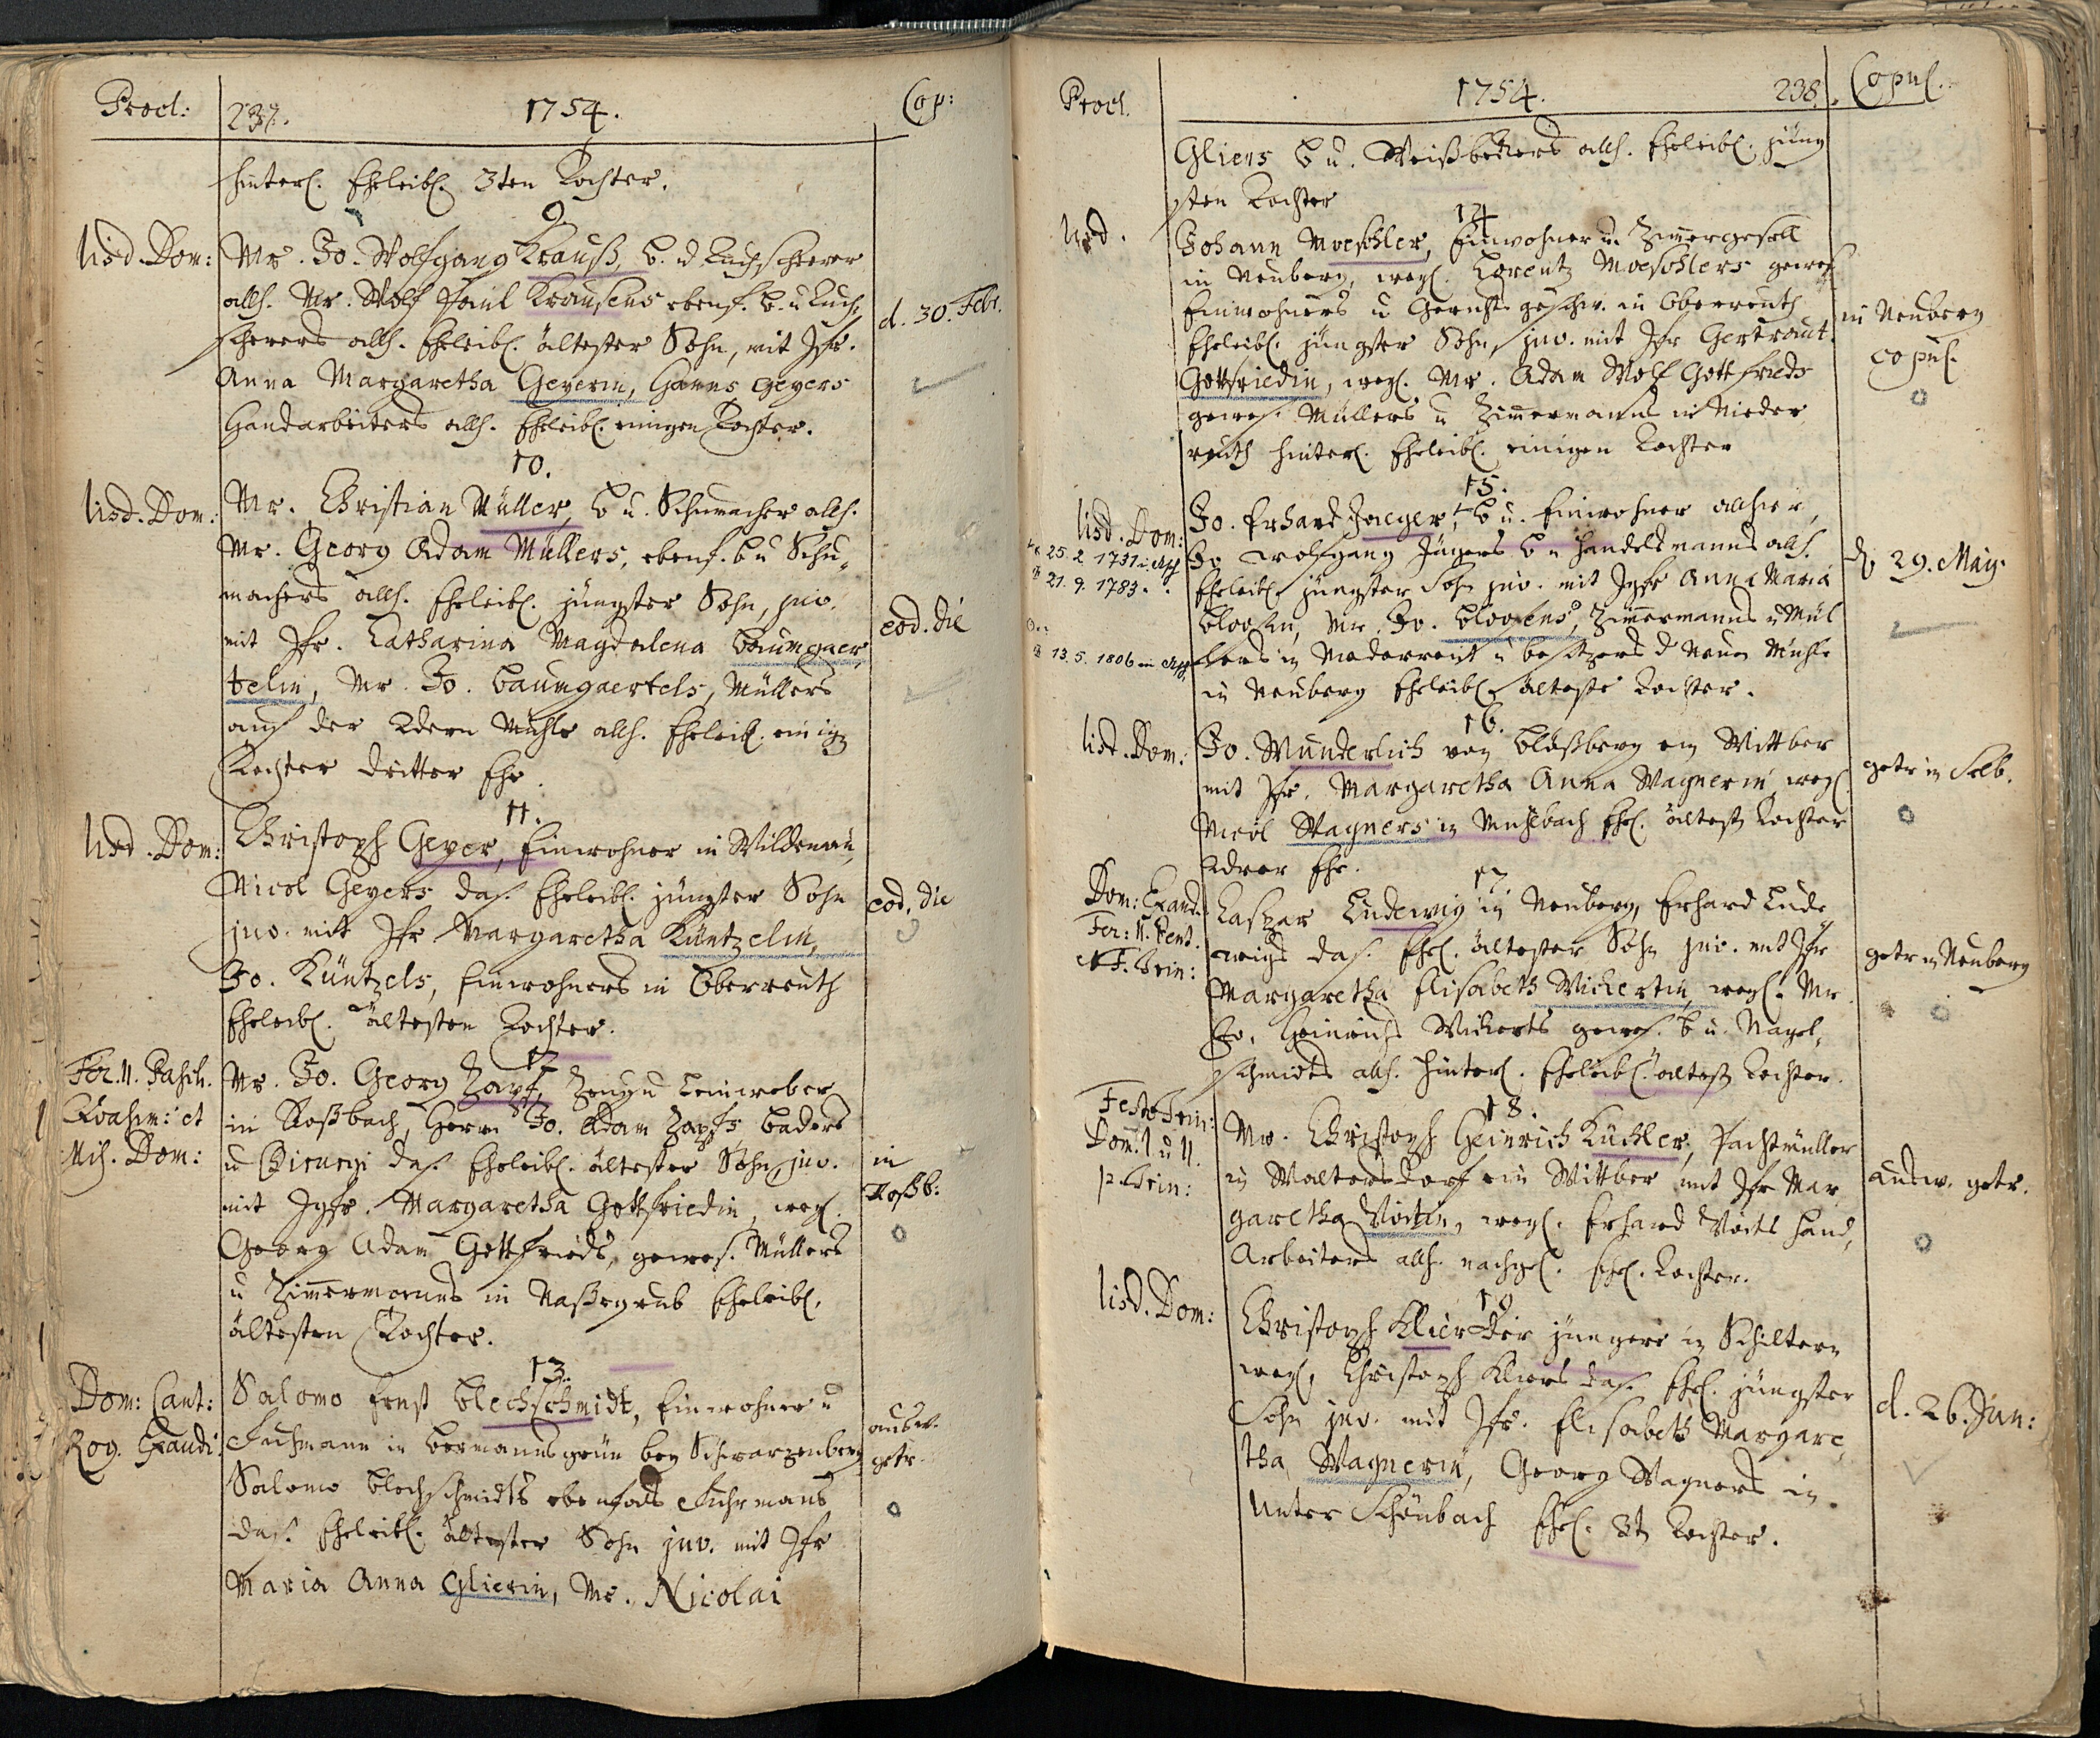 Procl: 237. 1754. Cop:
hinterl. Eheleibl. 3ten Tochter.
9.
Iisd. Dom: Mr. Jo. Wolfgang Krauß, B. u Tuchscherer
allh. Mr. Wolf Paul Krausens ebenf. B. u Tuch-
scherers allh. Eheleibl. ältester Sohn, mit Jfr. d. 30. Febr.
Anna Margaretha Geyerin, Hanns Geyers
Handarbeiters allh. Eheleibl. einigen Tochter.
10.
Iisd. Dom: Mr. Christian Müller, B u. Schumacher allh.
Mr. Georg Adam Müllers, ebenf. B u Schu-
machers allh. Eheleibl. jüngster Sohn, juv.
mit Jfr. Catharina Magdalena Baumgaer eod. die
telin, Mr. Jo. Baumgaertels, Müllers
auf der Mühle allh. Eheleibl. einige
Tochter dritter Ehe.
11.
Iisd. Dom: Christoph Geyer, Einwohner in Wildenau,
Nicol Geyers das. Eheleibl. jüngster Sohn eod. die
juv. mit Jfr Margaretha Küntzelin,
Jo. Küntzels, Einwohners in Oberreuth
Eheleibl. ältesten Tochter.
12
Fer. II. Pasch. Mr. Jo. Georg Zapf, Zeug u Leinweber
Qvasim: et in Roßbach, Herrn Jo. Adam Zapfs Baders
Mis. Dom: u Chirurgi das. Eheleibl. ältester Sohn, juv. in
mit Jgfr. Margaretha Gottfriedin, weyl. Roßb:
Georg Adam Gottfrieds, gewes. Müllers
u Zimmermanns in Naßengrub Eheleibl.
ältesten Tochter.
13.
Dom: Cant: Salomo Ernst Blechschmidt, Einwohner u
Rog. Exaudi: Fuhrmann in Bermannsgrün bey Schwarzenberg ausw. getr.
Salomo Blechschmidts ebenfals Fuhrmans
das. Eheleibl. ältester Sohn juv. mit Jfr
Maria Anna Glierin, Mr. Nicolai
Procl. 1754. 238. Copul.
Gliers B u. Weißbekers allh. Eheleibl. jüng
sten Tochter
14
Iisd. Johann Moeschler, Einwohner u. Zimmergesell
in Neuberg, weyl. Lorentz Moeschlers gewes.
Einwohners u Gerichts geschw. in Oberreuth in Neuberg
Eheleibl. jüngster Sohn, juv. mit Jfr Gertraut. copul.
Gottfriedin, weyl. Mr. Adam Wolf Gottfrieds
gewes. Müllers u Zimmermanns in Nieder
reuth hinterl. Eheleibl. einigen Tochter
15.
Iisd. Dom: Jo. Erhard Jaeger, B u. Einwohner allhier,
* 25. 2 1731 in Asch Jo Wolfgang Jägers B u Handelsmanns allh. d. 29. May.
21. 9. 1783. Eheleibl. jüngster Sohn juv. mit Jgfr Anna Maria
Mr. Jo. Zimmermanns u Mül
13. 5. 1806 in Asch lers in Niederreuth u Besitzers d Neuen Mühle
in Neuberg Eheleibl. älteste Tochter.
16.
Iisd. Dom: Jo. Wunderlich von Wittber getr in Selb.
mit Jfr. Margaretha Anna Wagnerin, weyl.
Nicol Wagners in Mühlbach Ehel. ältest Tochter
Ehe.
17.
Dom: Exaud. Caspar Ludewig in Neuberg, Erhard Lude-
Fer: II. Pent. wigs das. Ehel. ältester Sohn juv. mit Jfr getr in Neuberg
et F. Trin: Margaretha Elisabeth Wickertin, weyl. Mr.
Jo. Heinrich Wickerts gewes. B u. Nagel-
schmidts allh. hinterl. Eheleibl. ältest Tochter.
18.
Festo Trin: Mr. Christoph Heinrich Küchler, Pachtmüller
Dom. I u II. in Waltersdorf ein Wittber mit Jfr Mar ausw. getr.
p. Trin: garetha Voitin, weyl. Erhard Voits Hand-
Arbeiters allh. nachgel. Ehel. Tochter.
19
Iisd. Dom: Christoph Klier der jüngere in Schiltern
weyl. Christoph Kliers das. Ehel. jüngster
Sohn juv. mit Jfr. Elisabeth Margare- d. 26. Jun:
tha Wagnerin, Georg Wagners in
Unter Schönbach Ehel. 3t Tochter.